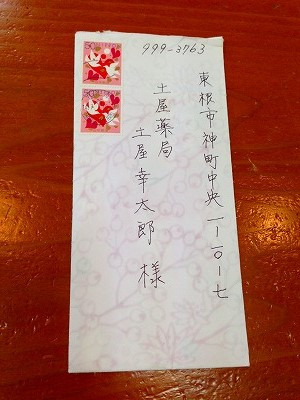 999-3763
東根市神町中央一-一〇-七
土屋薬局
土屋幸太郎様
50
50